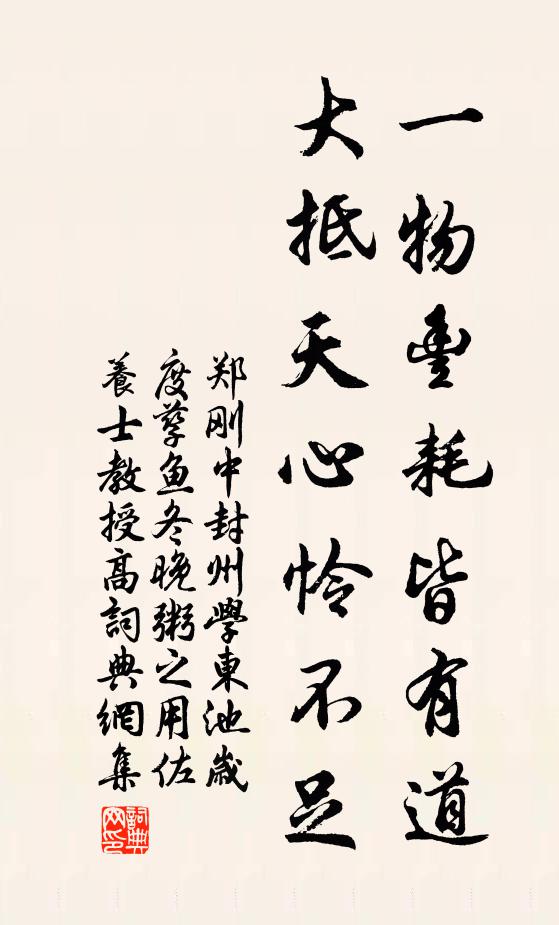 一物豊耗皆有道
大抵天心怜不足
郑刚中封州學東池歲
度孳鱼冬晚粥之用佐
養士教授高詞典網集
詞典网印